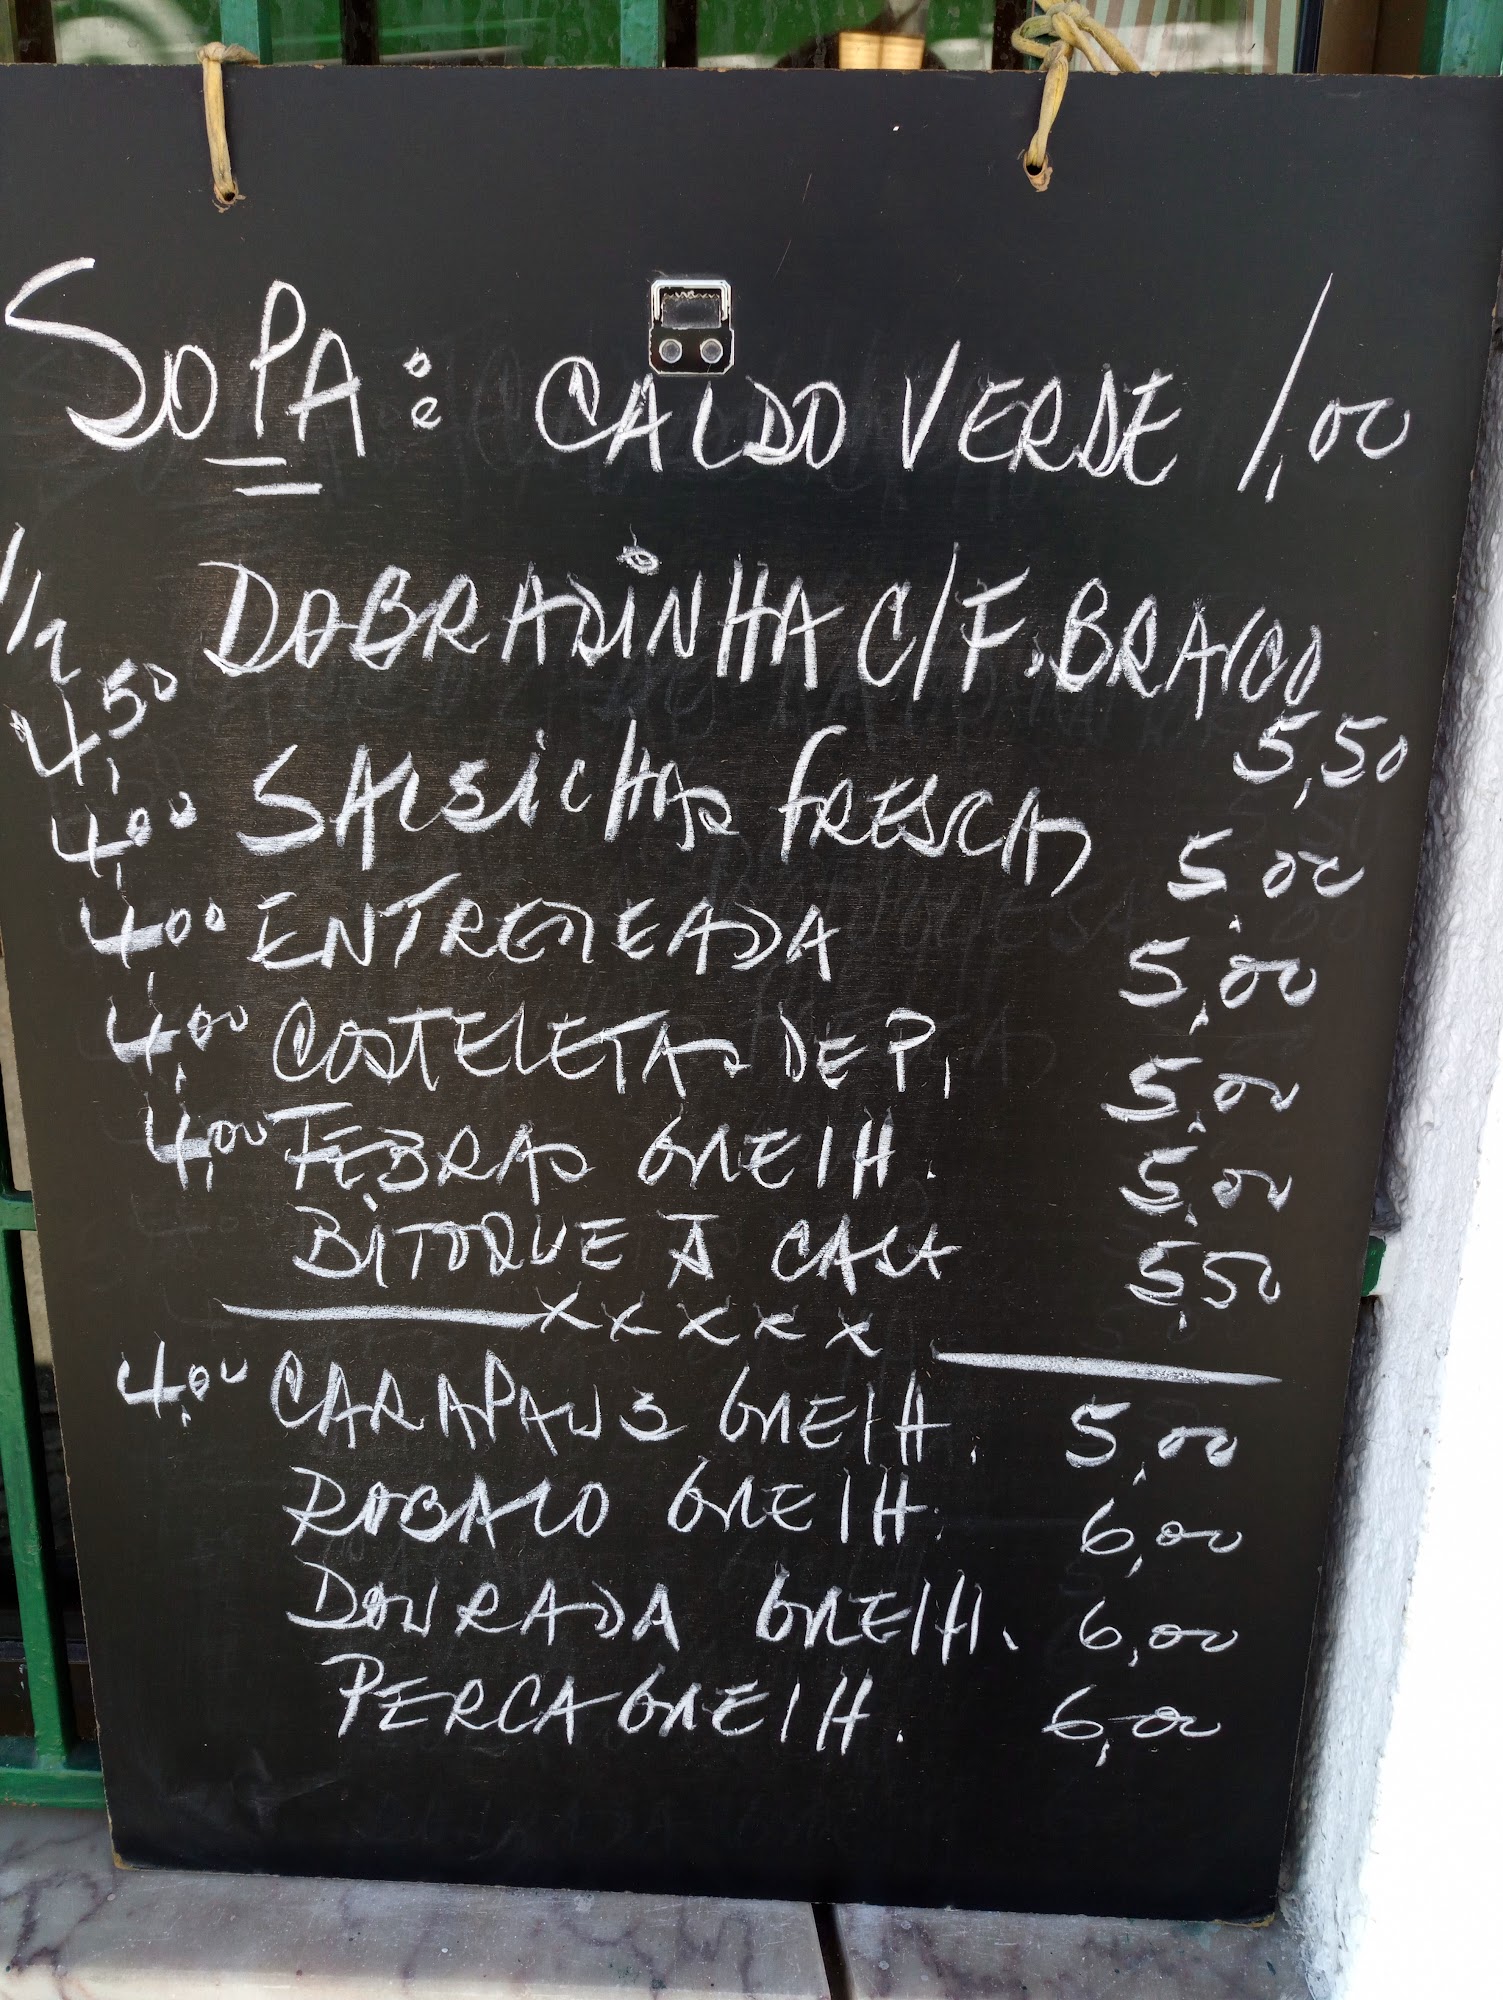 SOPA: CALDO VERDE 1,00
1/2 DOBRADINHA C/F. BRANCO
4,50 5,50
4,00 SALSICHAS FRESCAS 5,00
4,00 ENTREMEADA 5,00
4,00 COSTELETAS DE P. 5,00
4,00 FEBRAS GRELH. 5,00
BITOQUE À CASA 5,50
xxxxx
4,00 CARAPAUS GRELH. 5,00
ROBALO GRELH. 6,00
DOURADA GRELH. 6,00
PERCA GRELH. 6,00